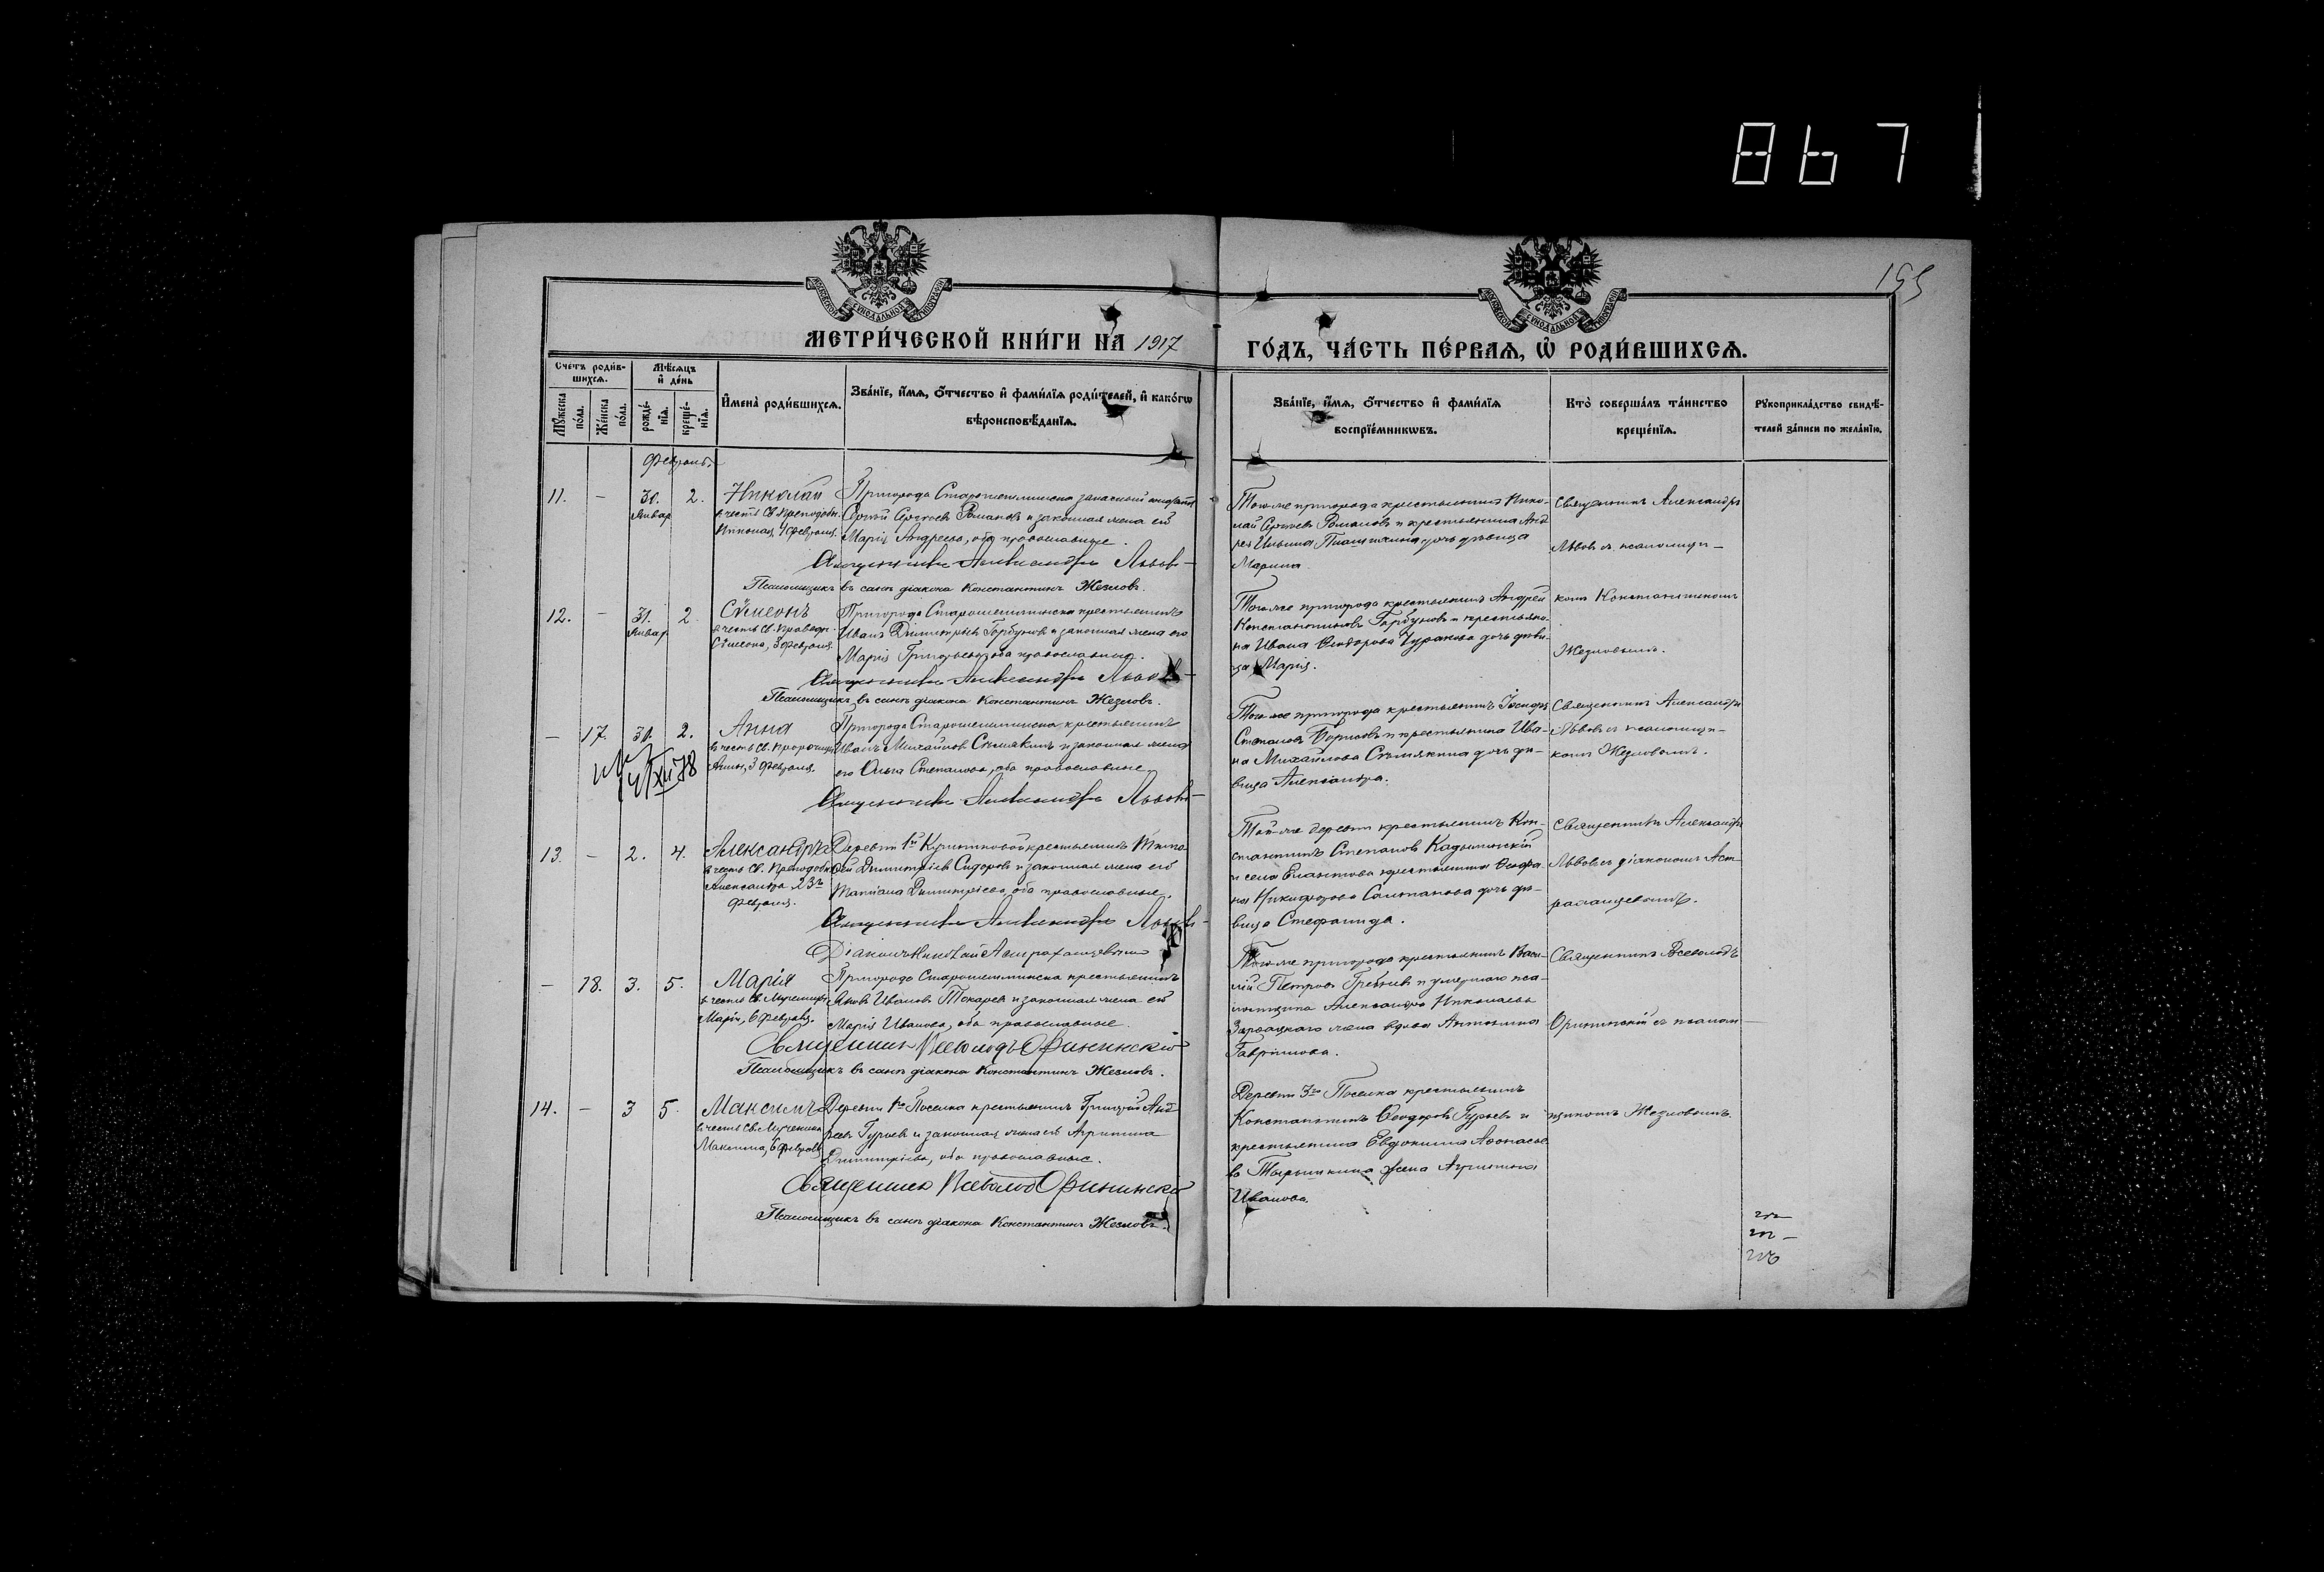 867
195
МОСКОВСКОЙ СѴНОДАЛЬНОЙ ТИПОГРАФІИ
МОСКОВСКОЙ СѴНОДАЛЬНОЙ ТИПОГРАФІИ
МЕТРИ́ЧЕСКОЙ КНИ́ГИ НА 1917
ГО́ДЪ, ЧА́СТЬ ПЕ́РВАѦ, Ѡ҆ РОДИ́ВШИХСѦ.
Счетъ роди́в-
шихсѧ.
Мѣ́сѧцъ
и҆ де́нь
Мꙋ́жеска
по́ла.
Же́нска
по́ла.
рожде́-
нїѧ.
креще́-
нїѧ.
И҆мена̀ роди́вшихсѧ.
Зва́нїе, и҆́мѧ, ѻ҆́тчество и҆ фами́лїѧ роди́телей, и҆ како́гѡ
вѣроисповѣ́данїѧ.
Зва́нїе, и҆́мѧ, ѻ҆́тчество и҆ фами́лїѧ
воспрїе́мникѡвъ.
Кто̀ соверша́лъ та́инство
креще́нїѧ.
Рꙋкоприкла́дство свидѣ́-
телей за́писи по жела́нїю.
Февраль.
11. – 30. 2. Николай
Январ
в честь Св. Преподобн.
Николая, 4 Февраля.
Пригорода Старошешминска запасный
Сергѣй Сергѣевъ Романовъ и законная жена его
Марія Андреева, оба православные.
Священникъ Александръ Львовъ
Псаломщикъ въ санѣ діакона Константинъ Жезловъ.
Того же пригорода крестьянинъ Нико-
лай Сергѣевъ Романовъ и крестьянина Анд
рея Ильина дочь дѣвица
Марина
Священникъ Александръ
Львовъ съ псаломщи-
12. – 31. 2. Сѵмеонъ
Январ
в честь Св. Праведн.
Сѵмеона, 3 Февраля.
Пригорода Старошешминска крестьянинъ
Иванъ Димитріевъ Горбуновъ и законная жена его
Марія Григорьева, оба православные.
Священникъ Александръ Львовъ
Псаломщикъ въ санѣ діакона Константинъ Жезловъ.
Того же пригорода крестьянинъ Андрей
Константиновъ Горбуновъ и крестьяни-
на Ивана Ѳеодорова Чуракова дочь дѣви-
ца Марія.
комъ Константиномъ
Жезловымъ.
– 17. 30. 2. Анна
в честь Св. Пророчицы
Анны, 3 Февраля.
4/XII 78
Пригорода Старошешминска крестьянинъ
Иванъ Михайловъ Сѣмякинъ и законная жена
его Ольга Степанова, оба православные.
Священникъ Александръ Львовъ
Того же пригорода крестьянинъ Іосифъ
Степановъ Борисовъ и крестьянина Ива-
на Михайлова Сѣмякина дочь дѣ-
вица Александра.
Священникъ Александръ
Львовъ съ псаломщи-
комъ Жезловымъ.
13. – 2. 4. Александръ
в честь Св. Преподобн.
Александра 23го
Февраля.
Деревни 1й крестьянинъ Тимо-
ѳей Димитріевъ Сидоровъ и законная жена его
Татіана Димитріева, оба православные.
Священникъ Александръ Львовъ
Діаконъ Николай Астраханцевъ
Той же деревни крестьянинъ Кон-
стантинъ Степановъ Кадыминскій
и села Елантова крестьянина
Никифорова Салтанова дочь дѣ-
вица Стефанида.
Священникъ Александръ
Львовъ съ діакономъ Аст-
раханцевымъ.
– 18. 3. 5. Марія
в честь Св. Мученицы
Маріи, 6 Февраля.
Пригорода Старошешминска крестьянинъ
Яковъ Ивановъ Токаревъ и законная жена его
Марія Иванова, оба православные.
Священникъ Всеволодъ Орининскій
Псаломщикъ въ санѣ діакона Константинъ Жезловъ.
Того же пригорода крестьянинъ Васи-
лій Петровъ Гребневъ и умершаго пса-
ломщика Александра Николаева
жена вдова Антонина
Гавріилова.
Священникъ Всеволодъ
Орининскій съ псалом-
14. – 3 5. Максимъ
в честь Св. Мученика
Максима, 6 Февраля
Деревни 1го Поселка крестьянинъ Григорій Анд
реевъ Гурьевъ и законная жена его Агрипина
Димитріева, оба православные.
Священникъ Всеволод Орининскій
Псаломщикъ въ санѣ діакона Константинъ Жезловъ.
Деревни 3го Поселка крестьянинъ
Константинъ Ѳеодоровъ Гурьевъ и
крестьянина Евдокима Аѳонасье-
ва жена Агрипина
Иванова.
щикомъ Жезловымъ.